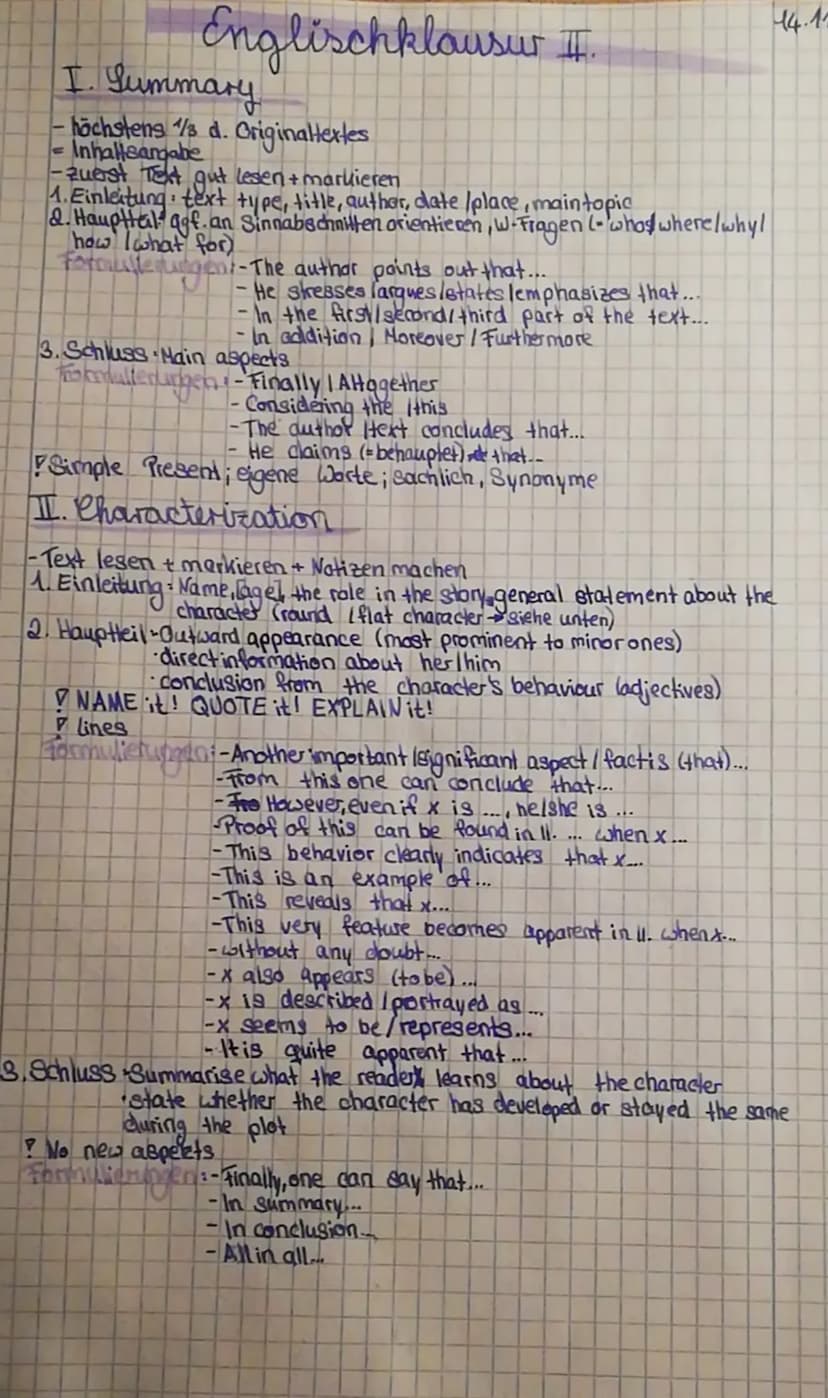 14.11
Englischklausur II.
I. Summary
- höchstens 1/3 d. Originaltextes
= Inhaltsangabe
- zuerst Text gut lesen + markieren
1. Einleitung: text type, title, author, date/place, main topic
2. Hauptteil: ggf. an Sinnabschnitten orientieren, W-Fragen (= who/where/why/
how/what for)
Formulierungen: - The author points out that...
- He stresses/argues/states/emphasizes that...
- In the first/second/third part of the text...
- In addition / Moreover / Furthermore
3. Schluss: Main aspects
Formulierungen: - Finally / Altogether
- Considering the / this
- The author/text concludes that...
- He claims (= behauptet) that...
! Simple Present; eigene Worte; sachlich, Synonyme
II. Characterization
- Text lesen + markieren + Notizen machen
1. Einleitung: Name, [age], the role in the story, general statement about the
character (round / flat character → siehe unten)
2. Hauptteil · Outward appearance (most prominent to minor ones)
· direct information about her/him
· conclusion from the character's behaviour (adjectives)
! NAME it! QUOTE it! EXPLAIN it!
! lines
Formulierungen: - Another important/significant aspect / fact is (that)...
- From this one can conclude that...
- However, even if x is ..., he/she is ...
- Proof of this can be found in ll. ... when x...
- This behavior clearly indicates that x...
- This is an example of...
- This reveals that x...
- This very feature becomes apparent in ll. when x...
- without any doubt...
- x also appears (to be)...
- x is described / portrayed as...
- x seems to be / represents...
- It is quite apparent that...
3. Schluss · Summarise what the reader learns about the character
· state whether the character has developed or stayed the same
during the plot
! No new aspekts
Formulierungen: - Finally, one can say that...
- In summary...
- In conclusion...
- All in all...